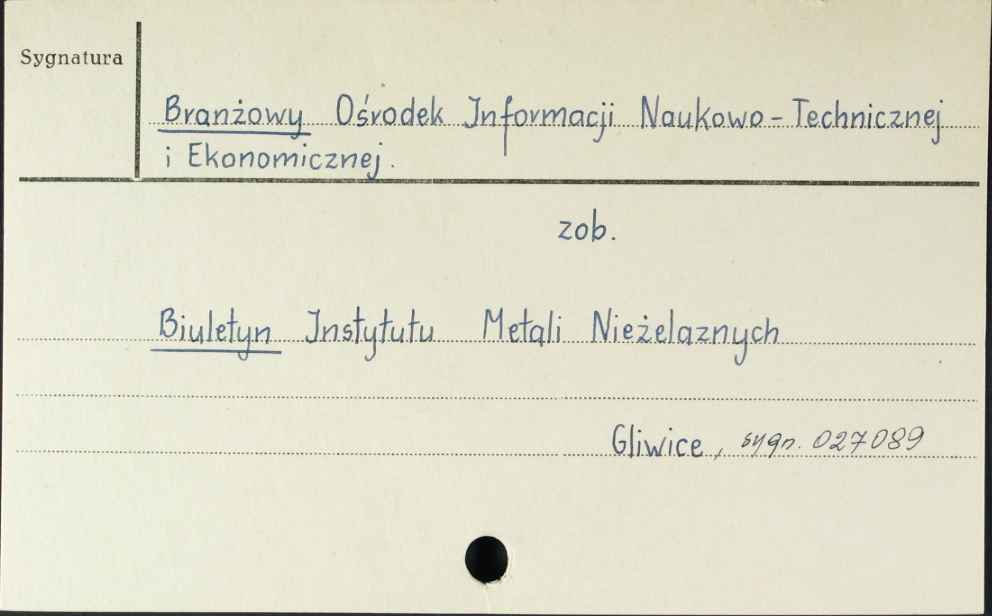 Sygnatura
Branżowy Ośrodek Informacji Naukowo-Technicznej
i Ekonomicznej.
zob.
Biuletyn Instytutu Metali Nieżelaznych
Gliwice, sygn. 027089